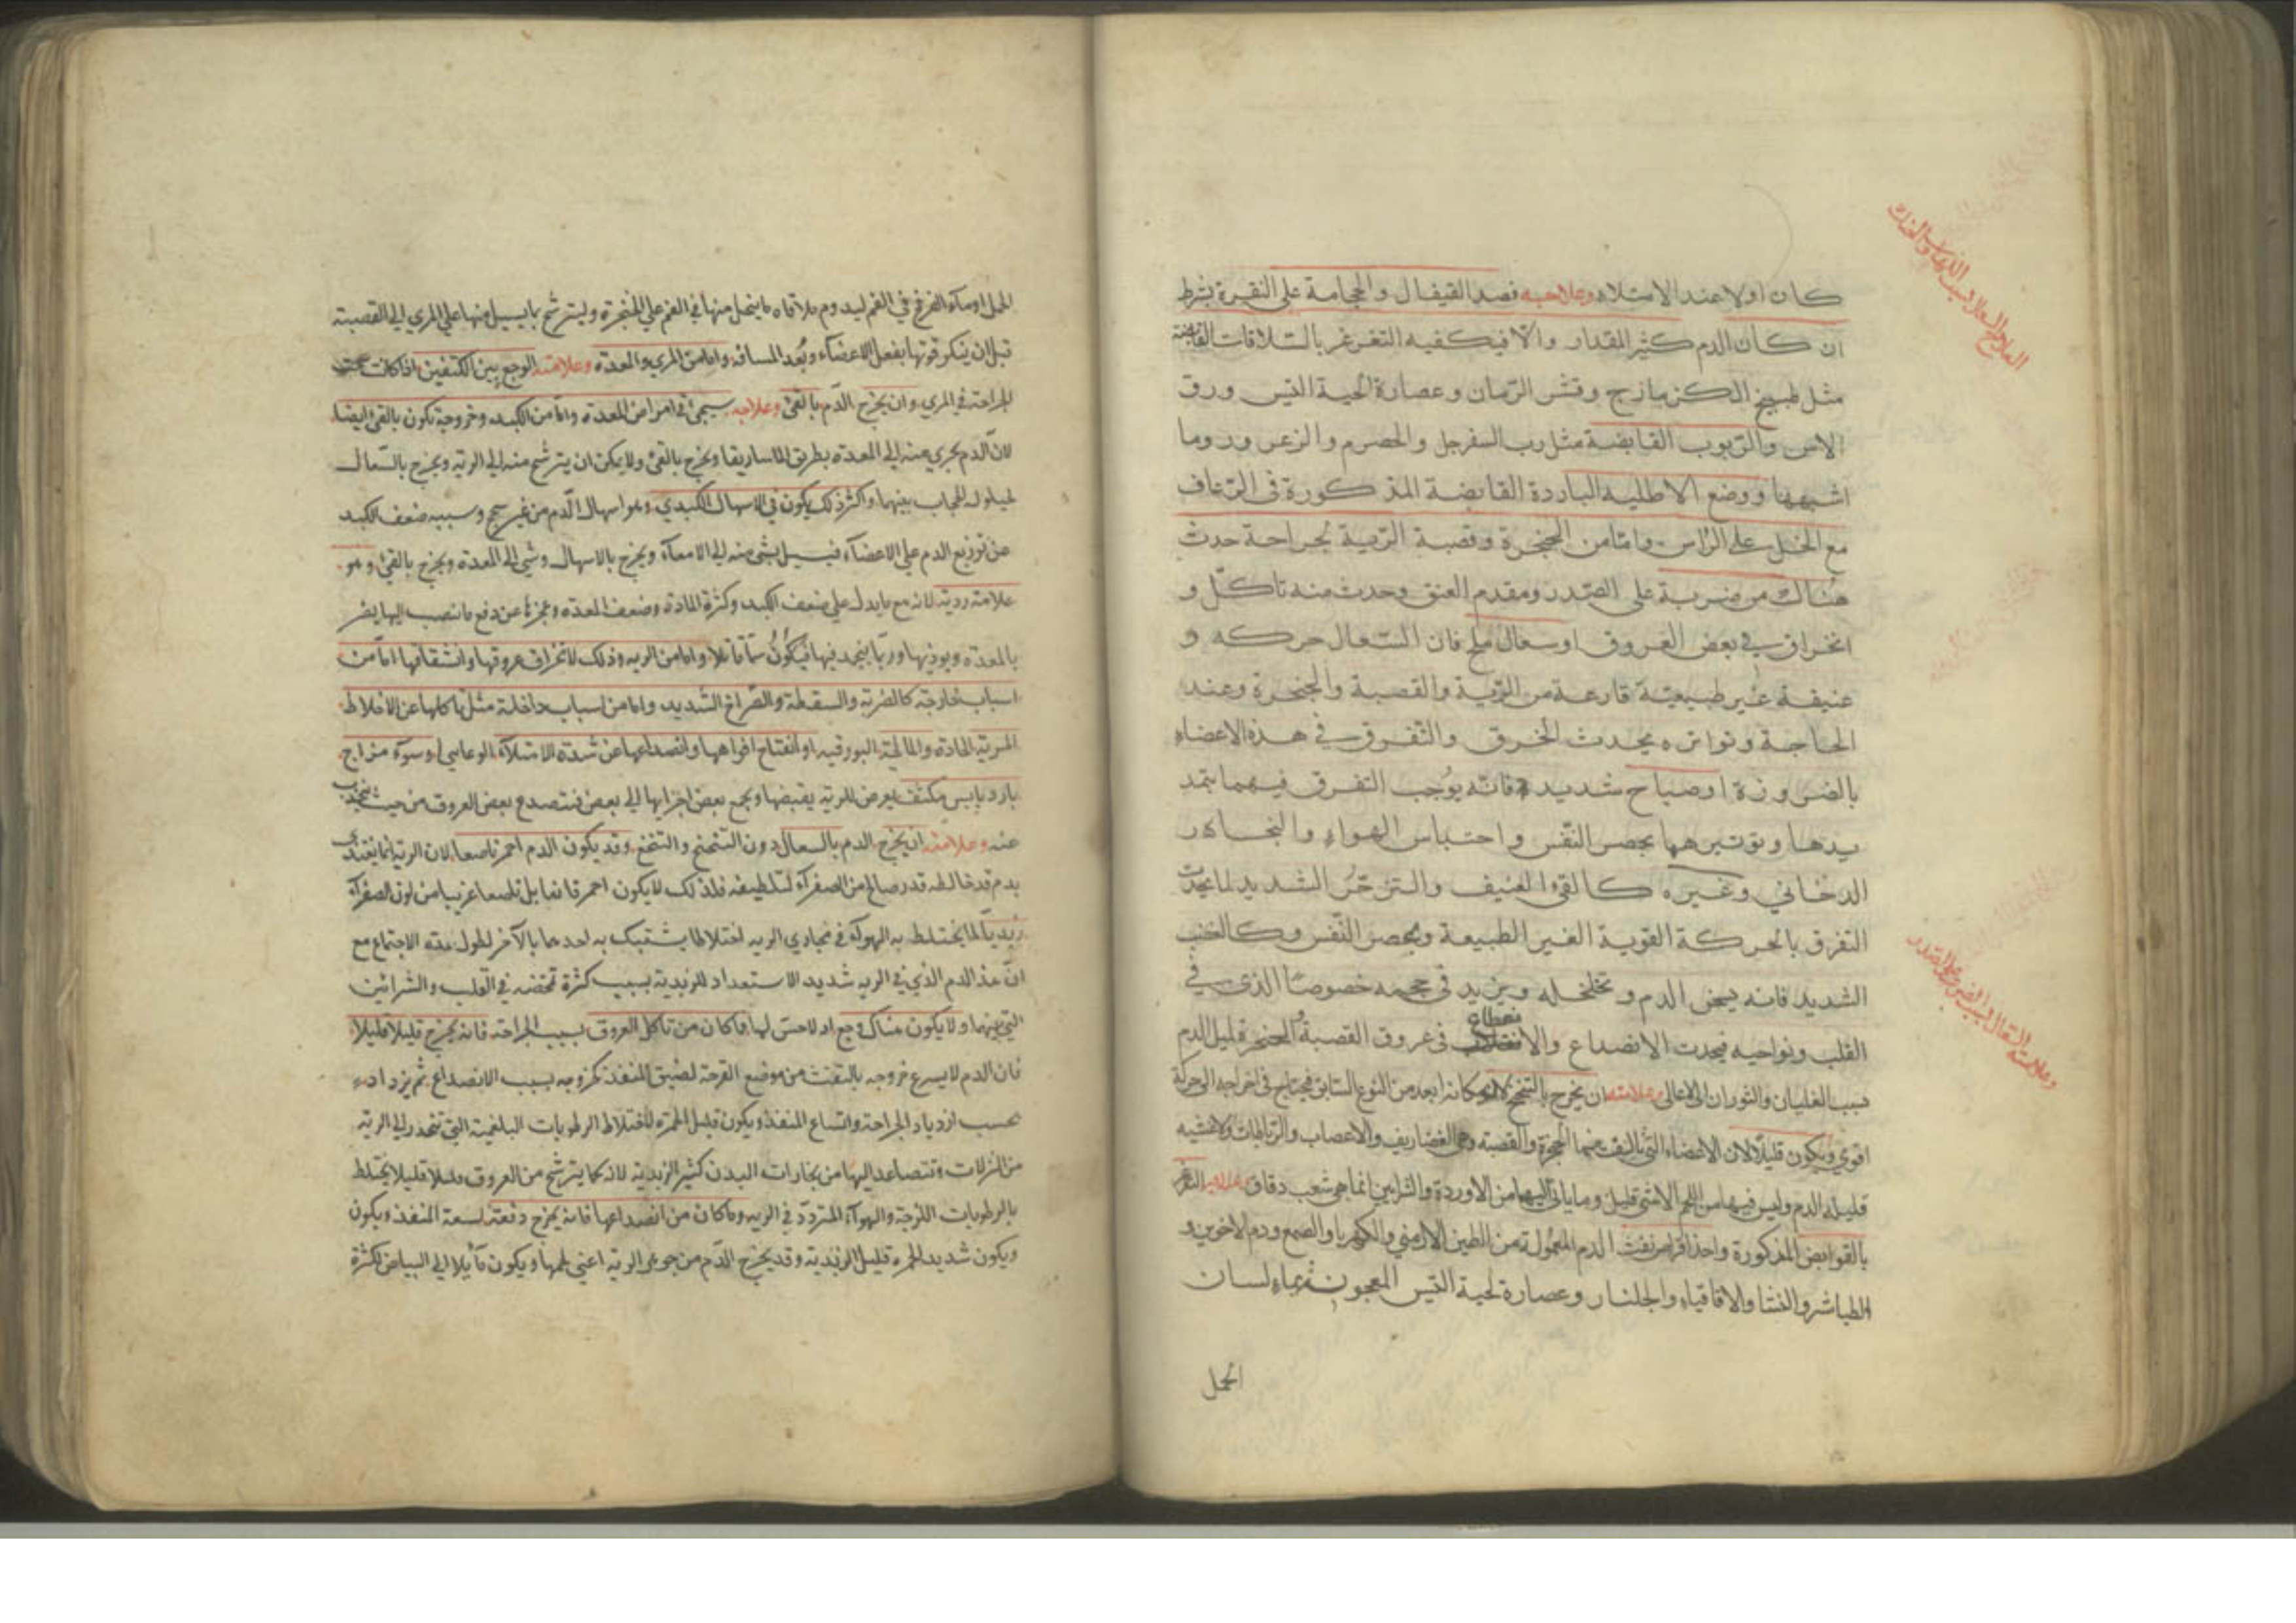 كان اولا عند الامتلاء وعلاجه فصد القيفال والحجامة على النقرة بشرط
ان كان الدم كثير المقدار والا فيكفيه التغرغر بالسلاقات القابضة
مثل طبيخ الكزمازج وقشر الرمان وعصارة لحية التيس وورق
الاس والربوب القابضة مثل رب السفرجل والحصرم والزعرور وما
اشبهها ووضع الاطلية الباردة القابضة المذكورة في الرعاف
مع الخل على الراس واما من الحنجرة وقصبة الرية لجراحة حدث
هناك من ضربة على الصدر ومقدم العنق وحدث منه تاكل و
انخراق في بعض العروق او سعال ملح فان السعال حركه و
عنيفة غير طبيعية قارعة من الرية والقصبة والحنجرة وعند
الحاجة وتواتره يحدث الخرق والتفرق في هذه الاعضاء
بالضرورة او صياح شديد فانه يوجب التفرق فيهما بتمد
يدها وتوتيرهما بحصر النفس واحتباس الهواء والبخار
الدخاني وغيره كالقئ العنيف والتزحر الشديد لما يحدث
التفرق بالحركة القوية الغير الطبيعة وبحصر النفس وكالغضب
الشديد فانه يسخن الدم ويخلخله ويزيد في حجمه خصوصا الذي في
القلب ونواحيه فيحدث الانصداع والانقطاع في عروق القصبة الحنجرة قليل الدم
بسبب الغليان والثوران الى الاعالي وعلامته ان يخرج بالتنحنح لان مكانه ابعد من النوع السابق فيحتاج في اخراجه الى حركة
اقوى ويكون قليلا لان الاعضاء التي تالفت منها الحنجرة والقصبة وهي الغضاريف والاعصاب والرباطات والاغشيه
قليلة الدم وليس فيها من اللحم الا شئ قليل وما ياتي اليها من الاوردة والشرايين انما هي شعب دقاق وعلاجه التغرغر
بالقوابض المذكورة واخذ اقراص نفث الدم المعمولة من الطين الارمني والكهربا والصمغ ودم الاخوين و
الطباشير والنشا والاقاقياء والجلنار وعصارة لحية التيس المعجونة بماء لسان
الحمل
الحمل او ساكه القرص في الفم ليدوم ملاقاه ما ينحل منها في الفم على الحنجرة وليترشح ما يسيل منها على المري الى القصبة
قبل ان ينكسر قوتها بفعل الاعضاء وبعد المسافه واما من المري والمعدة وعلامته الوجع بين الكتفين اذا كانت
الجراحة في المري وان يخرج الدم بالقئ وعلاجه سيجئ في امراض المعدة واما من الكبد وخروجه يكون بالقئ ايضا
لان الدم يجري منه الى المعدة بطريق الماساريقا ويخرج بالقئ ولا يمكن ان يترشح منه الى الرية ويخرج بالسعال
لحيلولة الحجاب بينهما واكثر ذلك يكون في الاسهال الكبدي وهو اسهال الدم من غير سحج وسببه ضعف الكبد
عن توزيع الدم على الاعضاء فيسيل شئ منه الى الامعاء ويخرج بالاسهال وشئ الى المعدة ويخرج بالقئ وهو
علامة ردية لانه مع ما يدل على ضعف الكبد وكثرة المادة وضعف المعدة وعجزها عن دفع ما ينصب اليها يضر
بالمعدة ويوذيها وربما ينجمد فيها فيكون سما قاتلا واما من الرية وذلك لانخراق عروقها وانشقاقها اما من
اسباب خارجة كالضربة والسقطة والصراخ الشديد واما من اسباب داخلة مثل تاكلها عن الاخلاط
المرية الحادة والمالحة البورقية او انفتاح افواهها وانصداعها عن شدة الامتلاء الوعائي او سوء مزاج
بارد يابس مكثف يعرض للرية يقبضها ويجمع بعض اجزائها الى بعض فتنصدع بعض العروق من حيث ينجذب
عنه وعلامته ان يخرج الدم بالسعال دون التنحنح والتنخع وقد يكون الدم احمر ناصعا لان الرية انما يغتذي
بدم قد خالطه قدر صالح من الصفراء لتلطيفه فلذلك لا يكون احمر قانيا بل ناصعا قريبا من لون الصفراء
زبديا لما يختلط به الهواء في مجاري الرية اختلاطا يشتبك به احدهما بالآخر لطول مدة الاجتماع مع
ان هذا الدم الذي في الرية شديد الاستعداد للزبدية بسبب كثرة تمخضه في القلب والشرائين
التي بينهما ولا يكون هناك وجع اذ لا حس لها فما كان من تاكل العروق بسبب الجراحة فانه يخرج قليلا قليلا
فان الدم لا يسرع خروجه بالنفث من موضع القرحة لضيق المنفذ كخروجه بسبب الانصداع ثم يزداد
بحسب ازدياد الجراحة واتساع المنفذ ويكون قليل الحمرة لاختلاط الرطوبات البلغمية التي تنحدر الى الرية
من النزلات وتتصاعد اليها من بخارات البدن كثير الزبدية لانه كما يترشح من العروق قليلا قليلا يختلط
بالرطوبات اللزجة والهواء المتردد في الرية وما كان من انصداعها فانه يخرج دفعة لسعة المنفذ ويكون
ويكون شديد الحمرة قليل الزبدية وقد يخرج الدم من جوهر الرية اعني لحمها ويكون مائلا الى البياض لكثرة